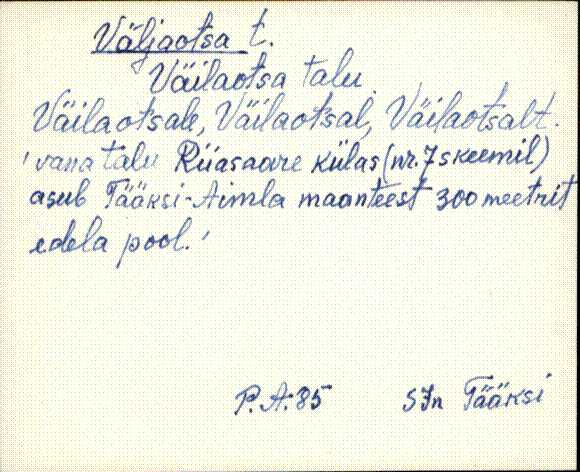 Väljaotsa t.
Väilaotsa talu
Väilaotsale, Väilaotsal, Väilaotsalt.
'vana talu Riiasaare külas (nr. 7 skeemil)
asub Tääksi-Aimla maanteest 300 meetrit
edela pool.'
P.A. 85 SJn Tääksi